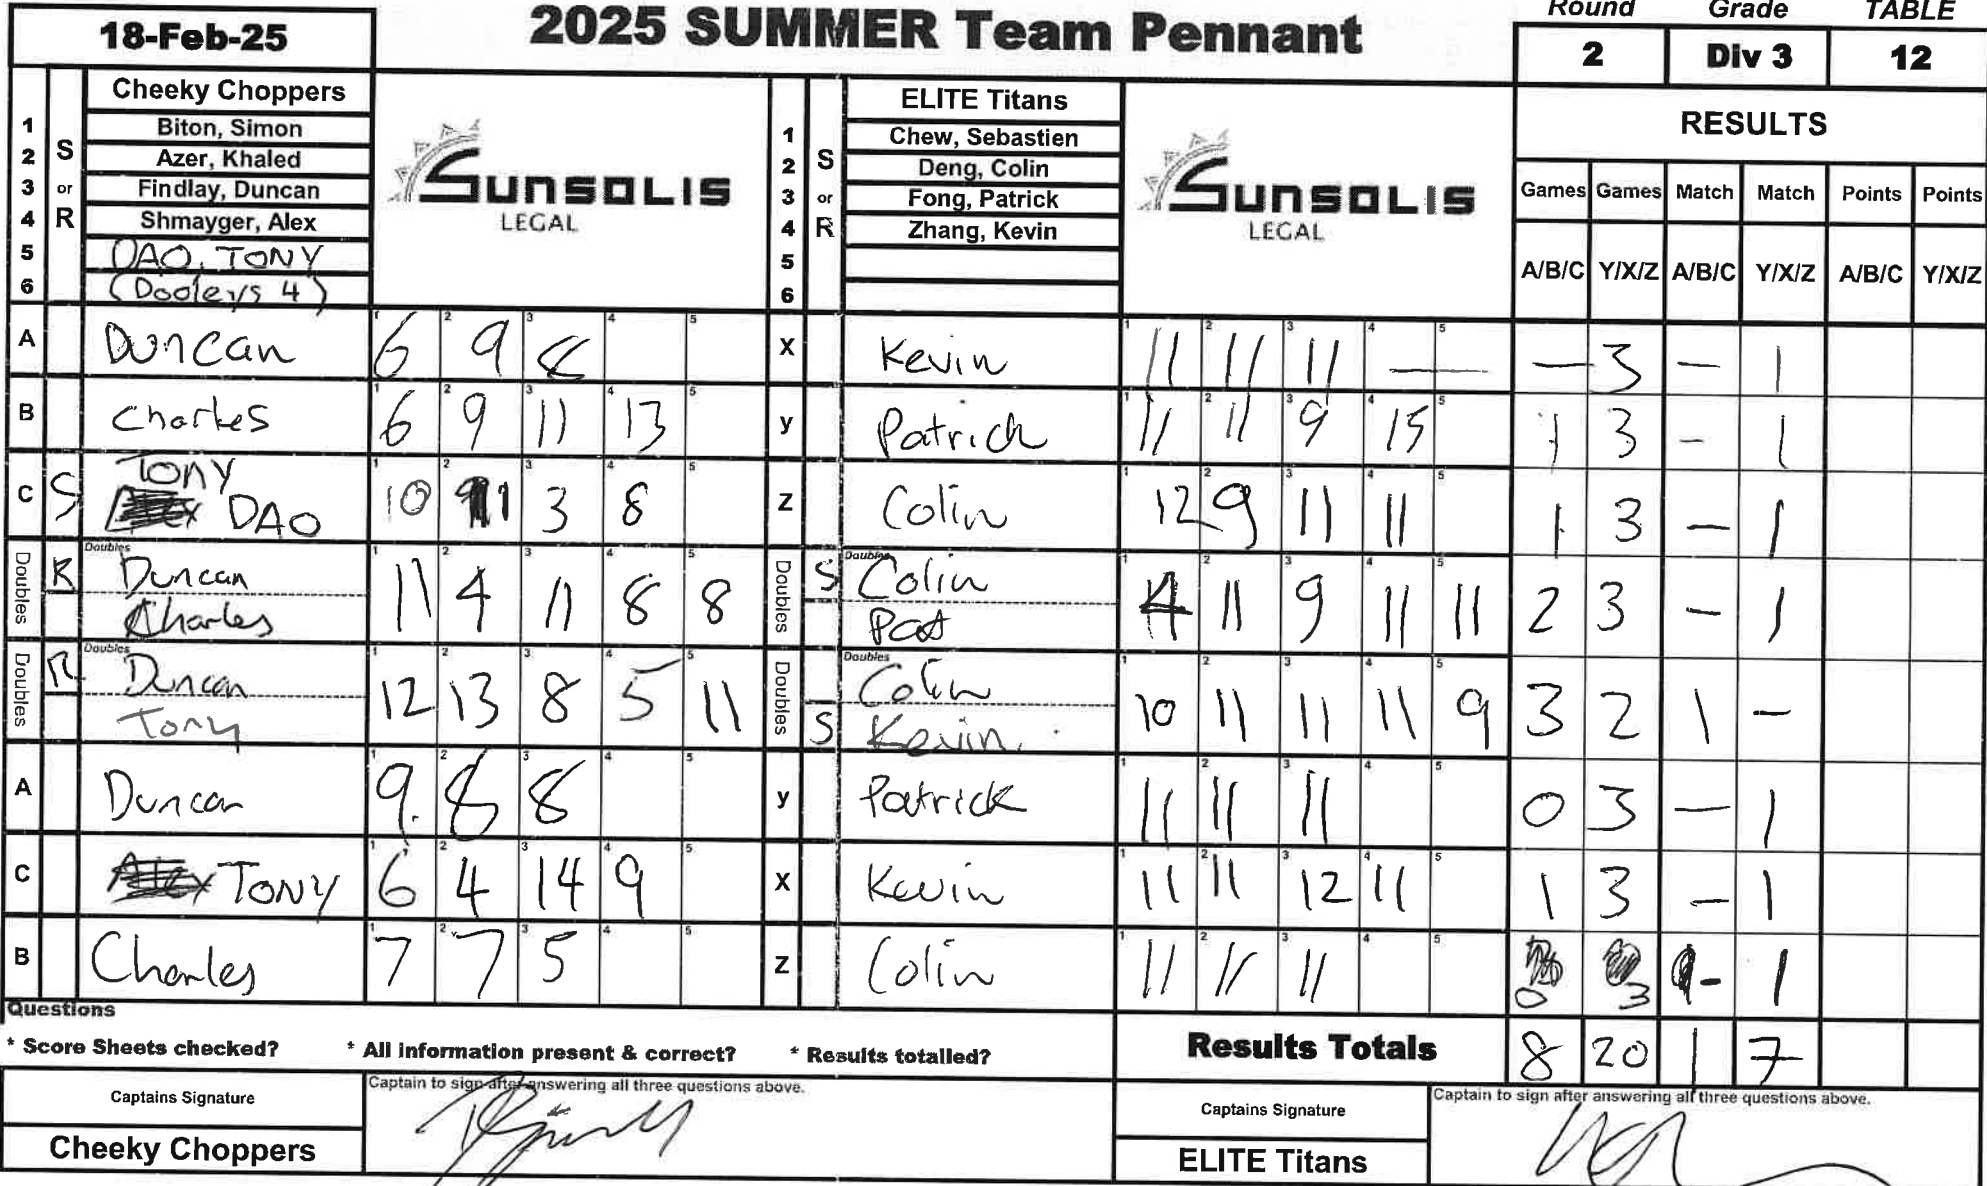 18-Feb-25
2025 SUMMER Team Pennant
Round Grade TABLE
2 Div 3 12
1 2 3 4 5 6
S or R
Cheeky Choppers
Biton, Simon
Azer, Khaled
Findlay, Duncan
Shmayger, Alex
DAO, TONY
(Dooleys 4)
SUNSOLIS
LEGAL
1 2 3 4 5 6
S or R
ELITE Titans
Chew, Sebastien
Deng, Colin
Fong, Patrick
Zhang, Kevin
SUNSOLIS
LEGAL
RESULTS
Games Games Match Match Points Points
A/B/C Y/X/Z A/B/C Y/X/Z A/B/C Y/X/Z
A Duncan 6 9 8 X Kevin 11 11 11 — — 3 — 1
B Charles 6 9 11 13 y Patrick 11 11 9 15 1 3 - 1
C S TONY DAO 10 11 3 8 Z Colin 12 9 11 11 1 3 — 1
Doubles R Doubles Duncan Charles 11 4 11 8 8 Doubles S Doubles Colin Pat 4 11 9 11 11 2 3 — 1
Doubles R Doubles Duncan Tony 12 13 8 5 11 Doubles S Doubles Colin Kevin 10 11 11 11 9 3 2 1 -
A Duncan 9 8 8 y Patrick 11 11 11 0 3 — 1
C TONY 6 4 14 9 X Kevin 11 11 12 11 1 3 — 1
B Charles 7 7 5 Z Colin 11 11 11 0 3 - 1
Questions
* Score Sheets checked? * All information present & correct? * Results totalled?
Results Totals 8 20 1 7
Captains Signature
Captain to sign after answering all three questions above.
Cheeky Choppers
Captains Signature
Captain to sign after answering all three questions above.
ELITE Titans